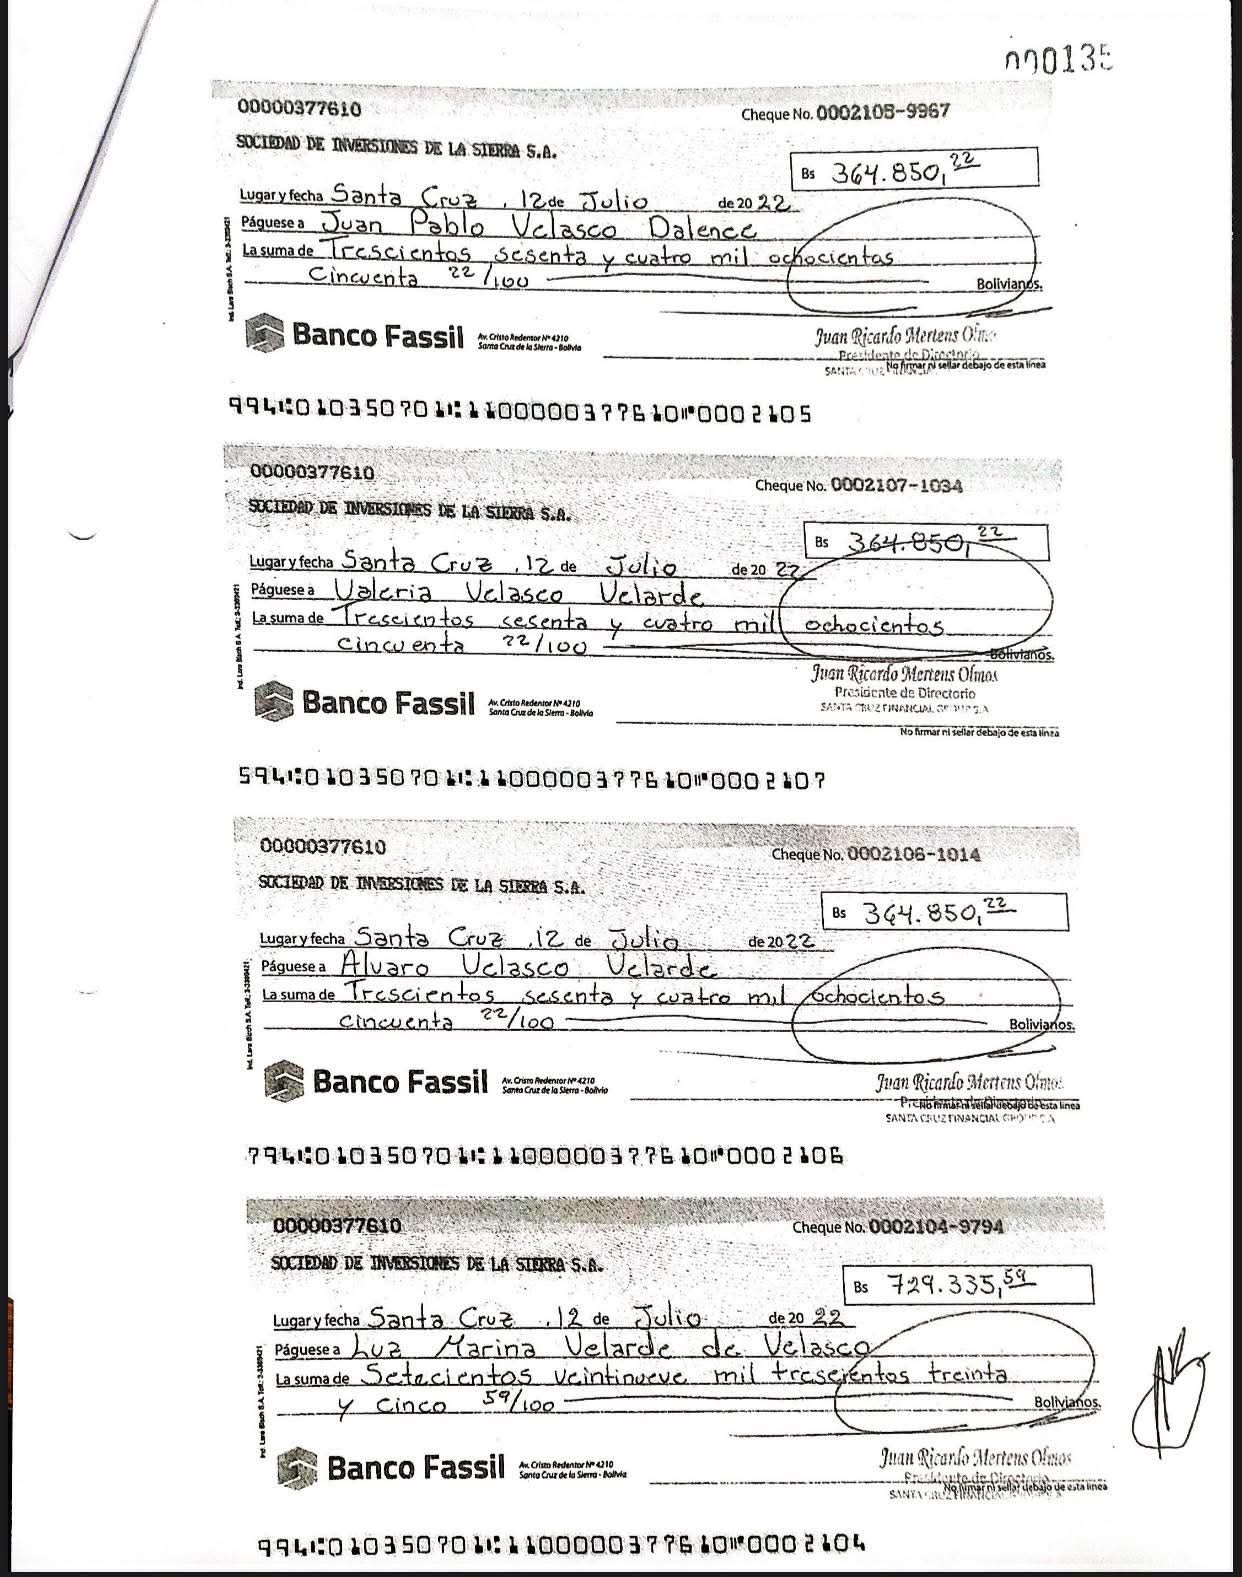 000135
00000377610
Cheque No. 0002105-9967
SOCIEDAD DE INVERSIONES DE LA SIERRA S.A.
Bs 364.850,22
Lugar y fecha Santa Cruz, 12 de Julio de 2022
Páguese a Juan Pablo Velasco Dalence
La suma de Trescientos sesenta y cuatro mil ochocientos
Cincuenta 22/100 Bolivianos.
Banco Fassil Av. Cristo Redentor Nº 4210
Santa Cruz de la Sierra - Bolivia
Juan Ricardo Mertens
Presidente de Directorio
No firmar ni sellar debajo de esta línea
SANTA CRUZ FINANCIAL
994⑆01035070⑆11000003776 10⑈0002105
00000377610
Cheque No. 0002107-1034
SOCIEDAD DE INVERSIONES DE LA SIERRA S.A.
Bs 364.850,22
Lugar y fecha Santa Cruz, 12 de Julio de 2022
Páguese a Valeria Velasco Velarde
La suma de Trescientos sesenta y cuatro mil ochocientos
cincuenta 22/100 Bolivianos.
Juan Ricardo Mertens Olmos
Presidente de Directorio
SANTA CRUZ FINANCIAL GROUP S.A
Banco Fassil Av. Cristo Redentor Nº 4210
Santa Cruz de la Sierra - Bolivia
No firmar ni sellar debajo de esta línea
594⑆01035070⑆11000003776 10⑈0002107
00000377610
Cheque No. 0002106-1014
SOCIEDAD DE INVERSIONES DE LA SIERRA S.A.
Bs 364.850,22
Lugar y fecha Santa Cruz, 12 de Julio de 2022
Páguese a Alvaro Velasco Velarde
La suma de Trescientos sesenta y cuatro mil ochocientos
cincuenta 22/100 Bolivianos.
Banco Fassil Av. Cristo Redentor Nº 4210
Santa Cruz de la Sierra - Bolivia
Juan Ricardo Mertens Olmos
Presidente de Directorio
No firmar ni sellar debajo de esta línea
SANTA CRUZ FINANCIAL GROUP S.A
794⑆01035070⑆11000003776 10⑈0002106
00000377610
Cheque No. 0002104-9794
SOCIEDAD DE INVERSIONES DE LA SIERRA S.A.
Bs 729.335,59
Lugar y fecha Santa Cruz, 12 de Julio de 2022
Páguese a Luz Marina Velarde de Velasco
La suma de Setecientos veintinueve mil trescientos treinta
y cinco 59/100 Bolivianos.
Banco Fassil Av. Cristo Redentor Nº 4210
Santa Cruz de la Sierra - Bolivia
Juan Ricardo Mertens Olmos
Presidente de Directorio
No firmar ni sellar debajo de esta línea
SANTA CRUZ FINANCIAL
994⑆01035070⑆11000003776 10⑈0002104